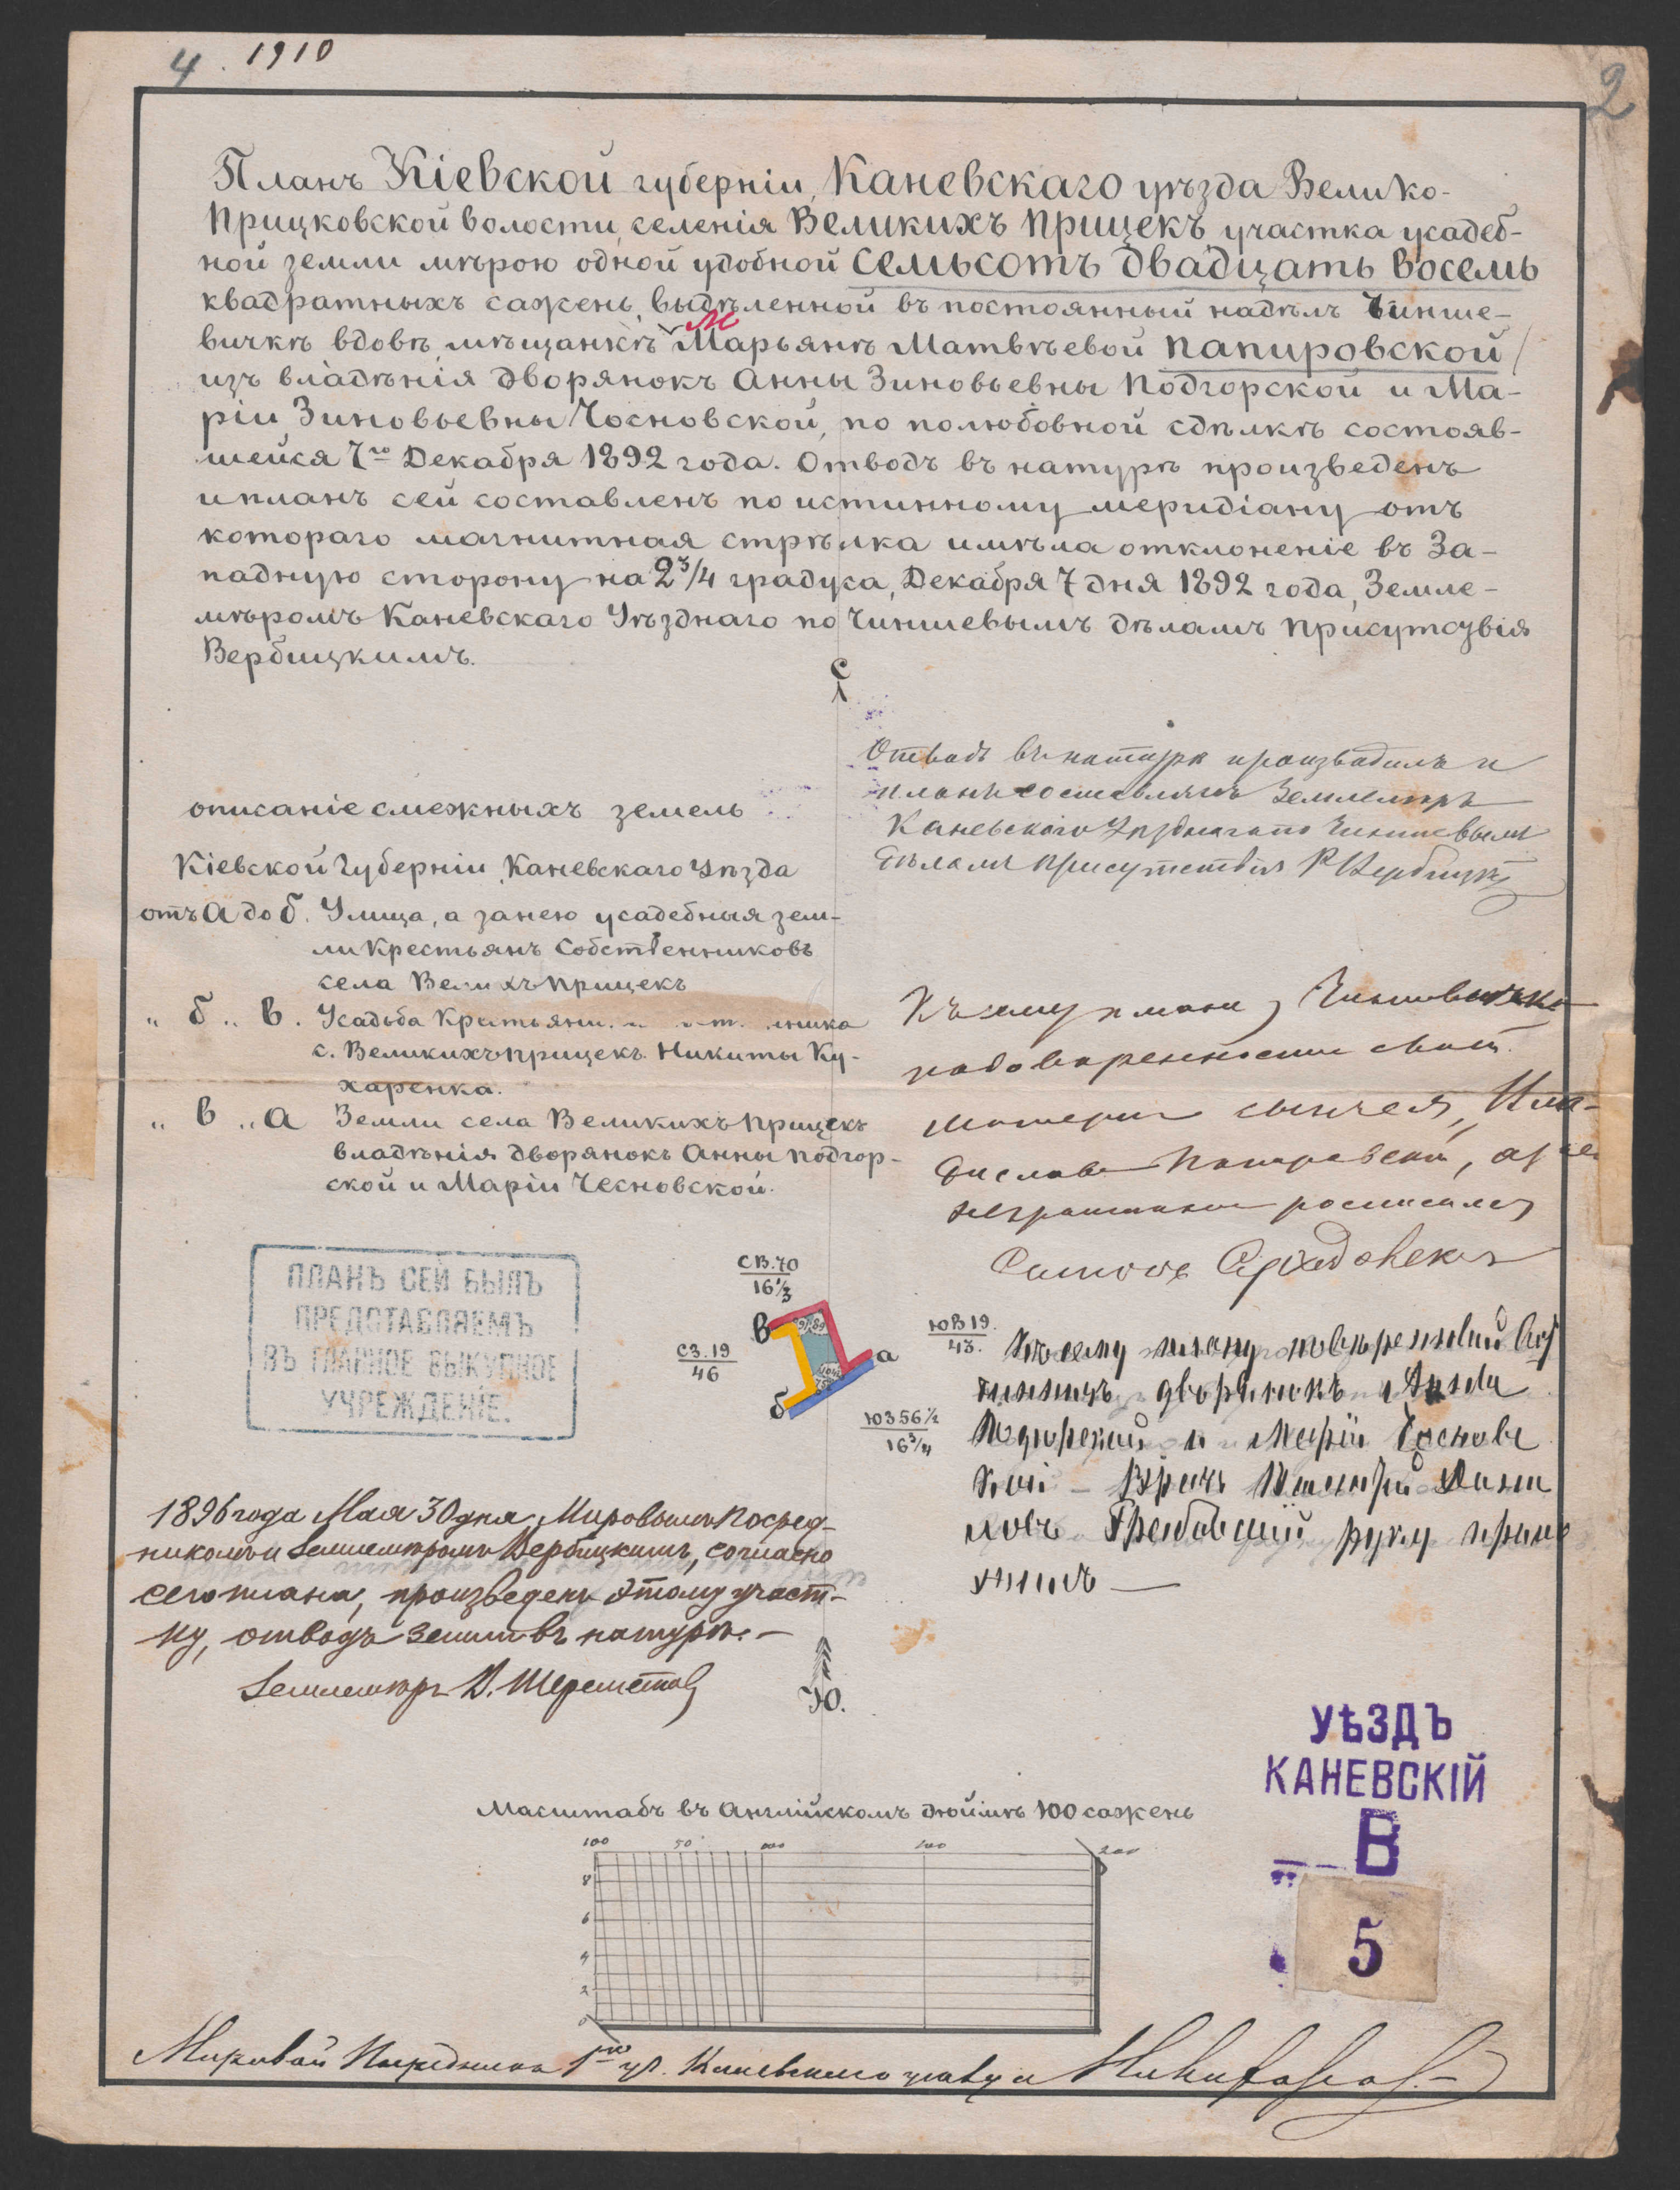 4. 1910
2
Планъ Кіевской губерніи, Каневскаго уѣзда Велико-
Прицковской волости, селенія Великихъ Прицекъ участка усадеб-
ной земли мѣрою одной удобной семьсотъ двадцать восемь
квадратныхъ сажень, выдѣленной въ постоянный надѣлъ Чинше-
вичкѣ вдовѣ, мѣщанкѣ Марьянѣ Матвѣевой Папировской
изъ владѣнія дворянокъ Анны Зиновьевны Подгорской и Ма-
ріи Зиновьевны Чосновской, по полюбовной сдѣлкѣ состояв-
шейся 7го Декабря 1892 года. Отводъ въ натурѣ произведенъ
и планъ сей составленъ по истинному меридіану отъ
котораго магнитная стрѣлка имѣла отклоненіе въ За-
падную сторону на 2 3/4 градуса, Декабря 7 дня 1892 года, Земле-
мѣромъ Каневскаго Уѣзднаго по Чиншевымъ дѣламъ присутствія
Вербицкимъ.
С
Отводъ въ натурѣ производилъ и
планъ составлялъ Землемѣръ
Каневскаго Уѣзднаго по Чиншевымъ
дѣламъ присутствія Р Вербицкій
описаніе смежныхъ земель
Кіевской Губерніи, Каневскаго Уѣзда
отъ а до б. Улица, а за нею усадебныя зем-
ли Крестьянъ Собственниковъ
села Великихъ Прицекъ
„ б „ в. Усадьба Крестьяни
с. Великихъ Прицекъ Никиты Ку-
харенка.
„ в „ а Земли села Великихъ Прицекъ
владѣнія дворянокъ Анны Подгор-
ской и Маріи Чесновской.
Къ сему плану,
по довѣренности своей
матери сынъ ея,
Папировскій, а за
неграмотнаго росписался
ПЛАНЪ СЕЙ БЫЛЪ
ПРЕДСТАВЛЯЕМЪ
ВЪ ГЛАВНОЕ ВЫКУПНОЕ
УЧРЕЖДЕНІЕ.
СВ.70
16 1/3
в
СЗ.19
46
91 89
а
б
ЮВ 19.
43.
ЮЗ 56 1/2
16 3/4
Къ сему плану повѣренный
дворянокъ Анны
Подгорской и Маріи Чоснов
ской - Врачъ
руку прило
жилъ —
1896 года Мая 30 дня, Мировымъ Посред-
никомъ и Землемѣромъ Вербицкимъ, согласно
сего плана, произведенъ этому участ-
ку, отводъ земли въ натурѣ. —
Землемѣръ В. Шереметов
Ю.
УѢЗДЪ
КАНЕВСКІЙ
В
5
Масштабъ въ Англійскомъ дюймѣ 100 сажень
100 50 000 100 200
8
6
4
2
0
Мировой Посредникъ 1го уч. Каневскаго уѣзда